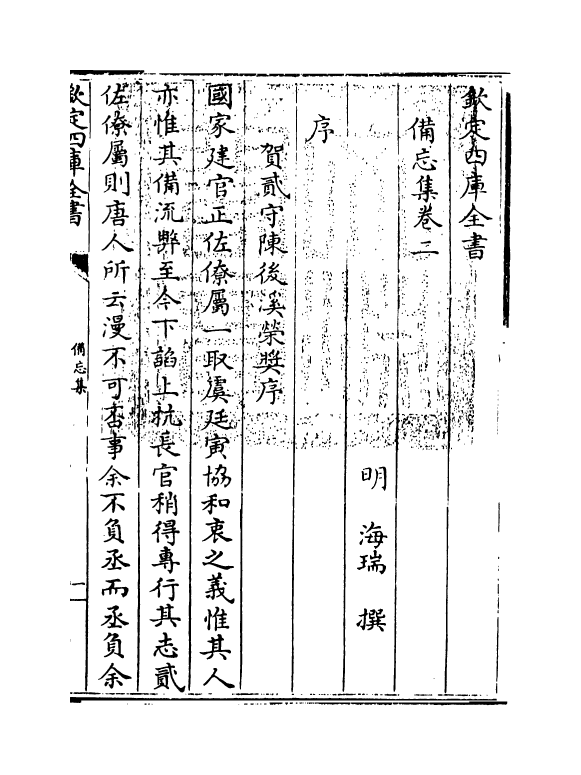 欽定四庫全書
備忘集卷二
明　海瑞　撰
序
賀貳守陳後溪榮奬序
國家建官正佐僚屬一取虞廷寅協和衷之義惟其人
亦惟其備流弊至今下諂上抗長官稍得專行其志貳
佐僚屬則唐人所云漫不可否事余不負丞而丞負余
欽定四庫全書
備忘集
一